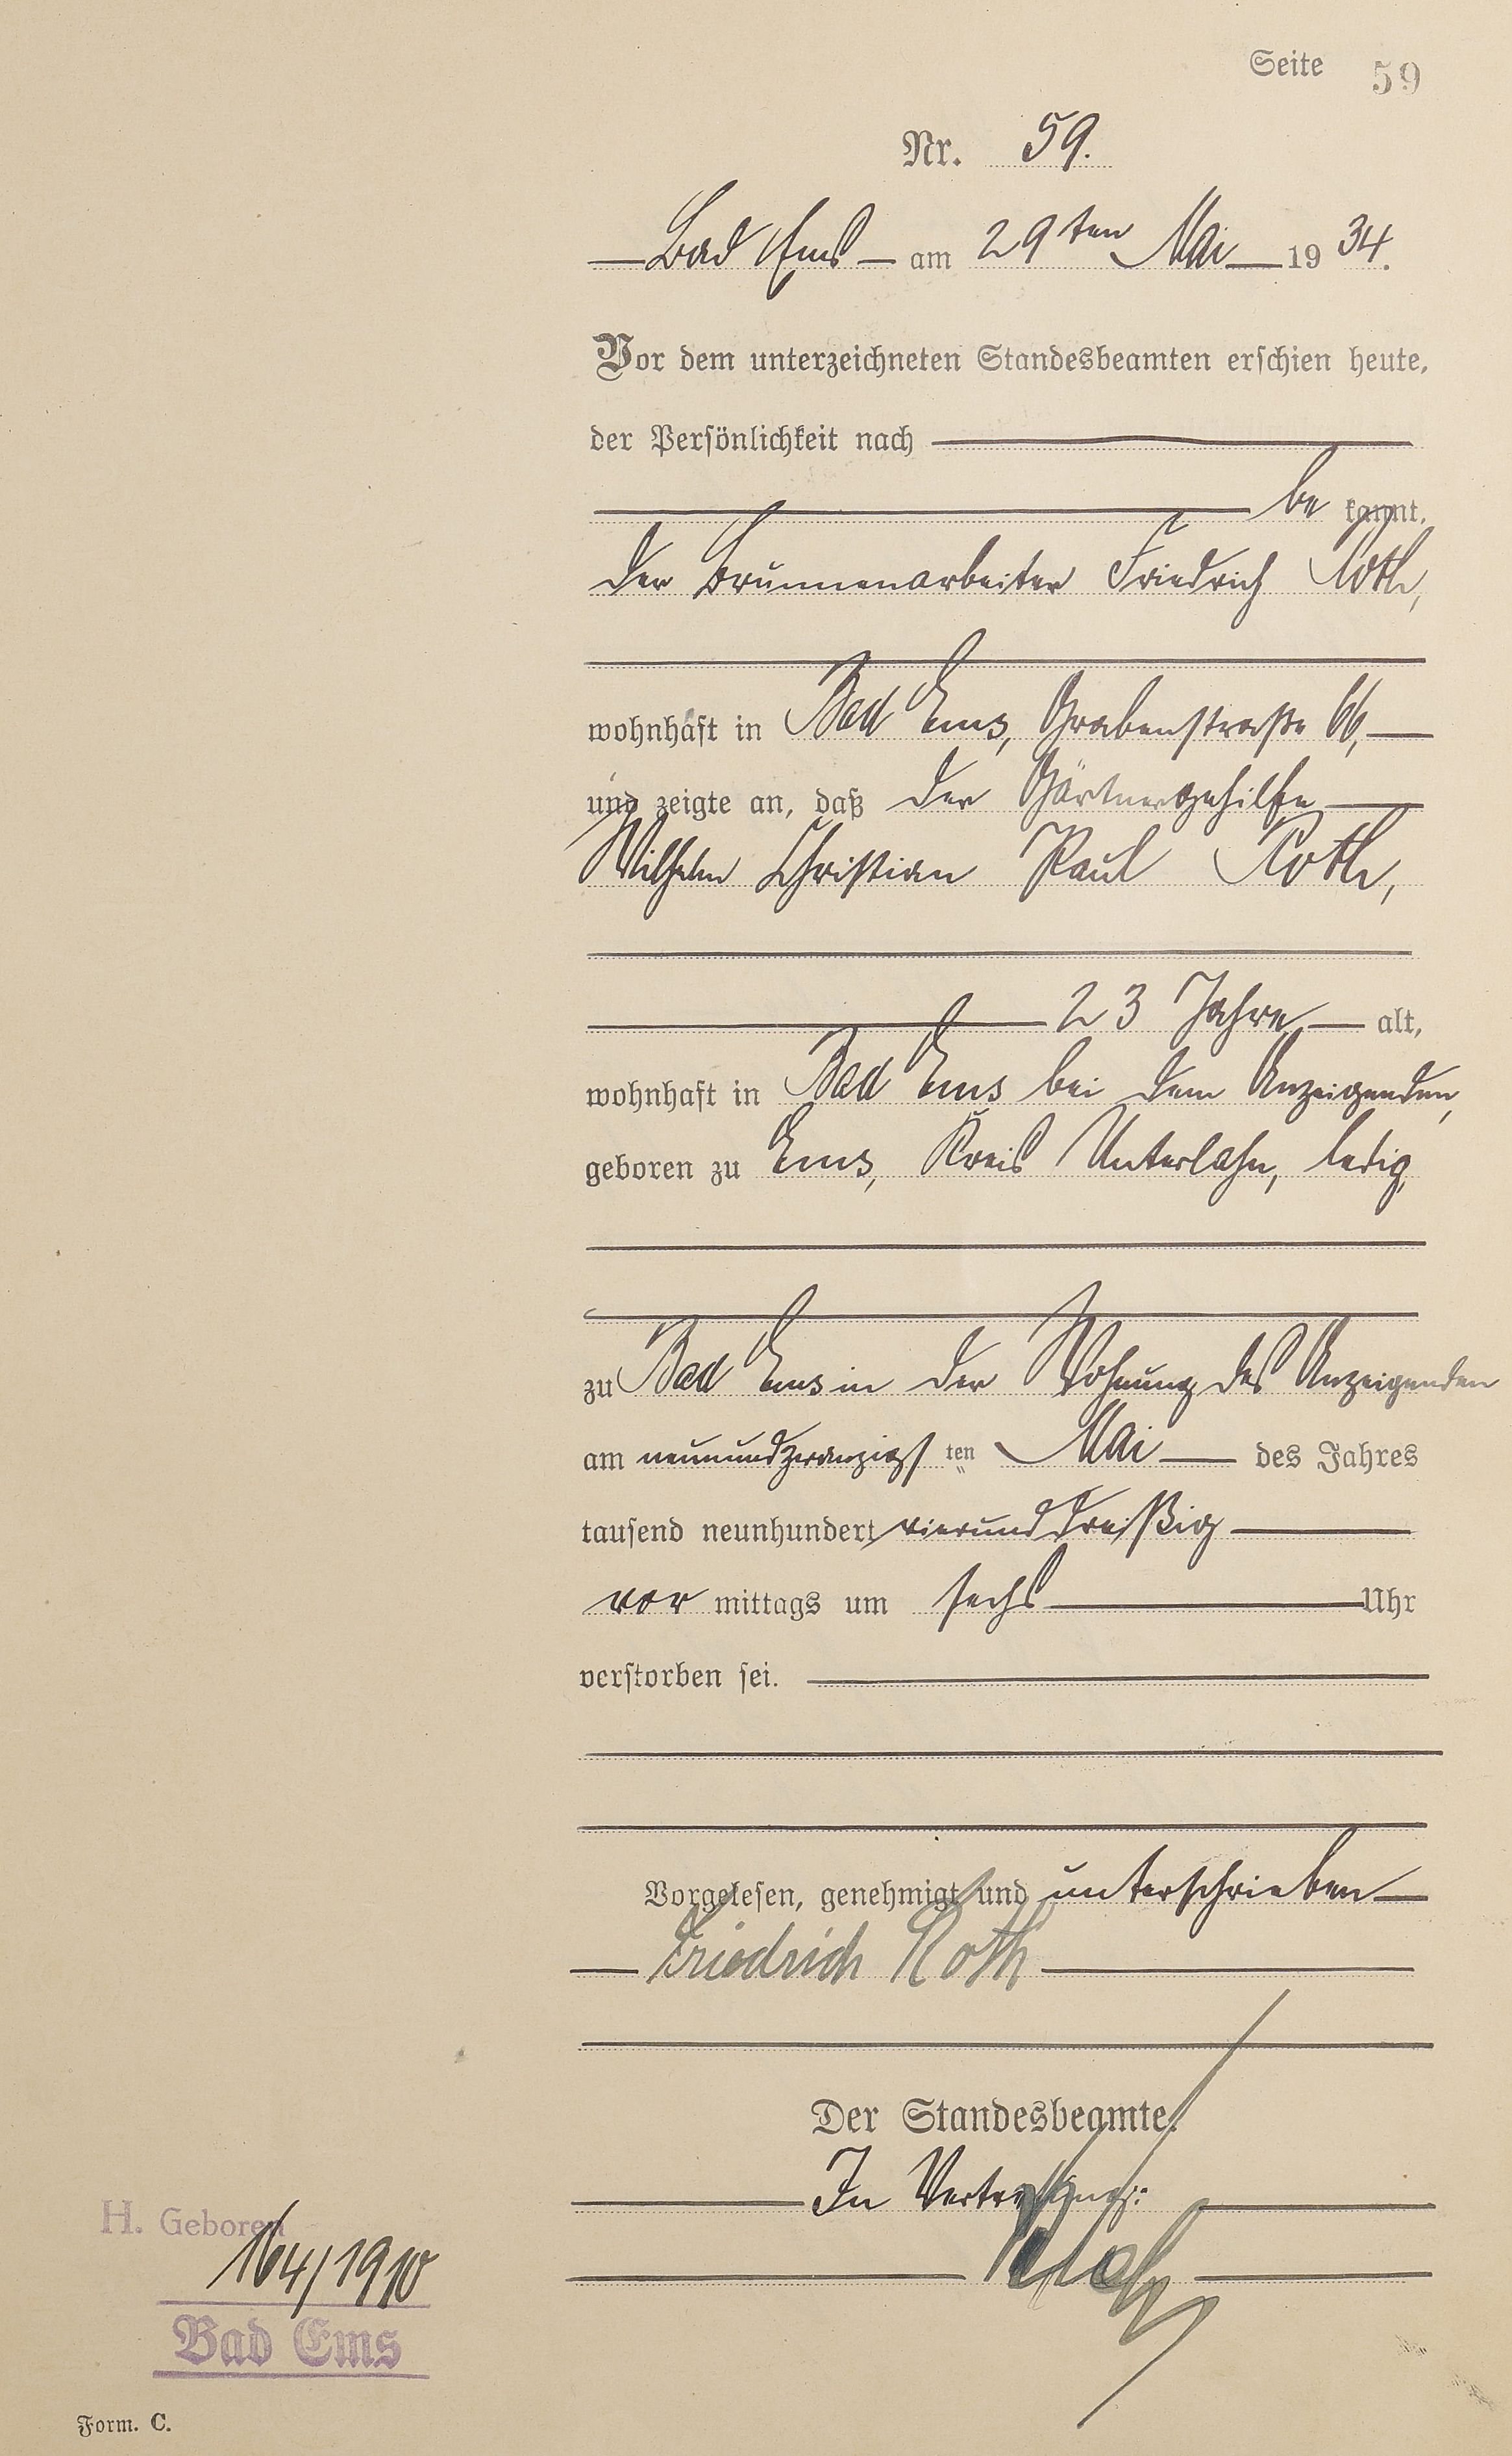 Seite 59
Nr. 59.
Bad Ems am 29ten Mai 1934.
Vor dem unterzeichneten Standesbeamten erschien heute,
der Persönlichkeit nach
be kannt,
der Brunnenarbeiter Friedrich Roth,
wohnhaft in Bad Ems, Grabenstraße 66,
und zeigte an, daß der Gärtnergehilfe
Wilhelm Christian Paul Roth,
23 Jahre alt,
wohnhaft in Bad Ems bei dem Anzeigenden,
geboren zu Ems, Kreis Unterlahn, ledig,
zu Bad Ems in der Wohnung des Anzeigenden
am neunundzwanzigsten Mai des Jahres
tausend neunhundert vierunddreißig
vor mittags um sechs Uhr
verstorben sei.
Vorgelesen, genehmigt und unterschrieben
Friedrich Roth
Der Standesbeamte.
In Vertretung:
H. Geboren
164/1910
Bad Ems
Form. C.